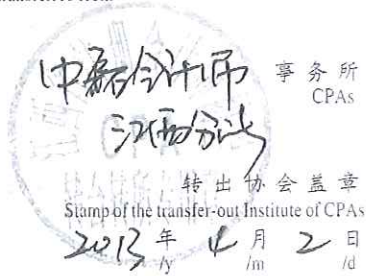 中磊会计师 事务所
CPAs
江西分所
转出协会盖章
Stamp of the transfer-out Institute of CPAs
2013 年 4 月 2 日
/y /m /d